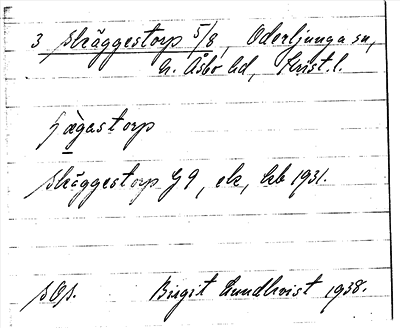 3 Skäggestorp 5/8, Oderljunga sn,
N. Åsbo hd, Krist.l.
Skäggestorp G9, ek, kb 1931.
SOp. Birgit Lundkvist 1938.